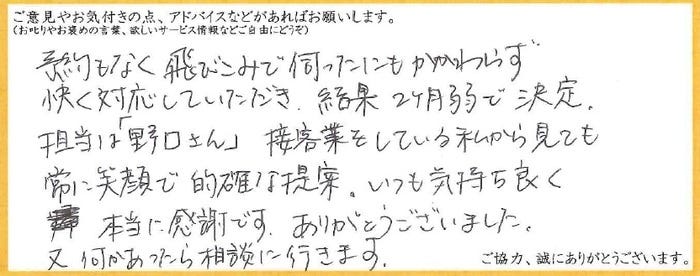 ご意見やお気付きの点、アドバイスなどがあればお願いします。
(お叱りやお褒めの言葉、欲しいサービス情報などご自由にどうぞ)
予約もなく飛びこみで伺ったにもかかわらず
快く対応していただき、結果 2ヶ月弱で決定。
担当は「野口さん」 接客業をしている私から見ても
常に笑顔で的確な提案。いつも気持ち良く
本当に感謝です。ありがとうございました。
又何かあったら相談に行きます。
ご協力、誠にありがとうございます。